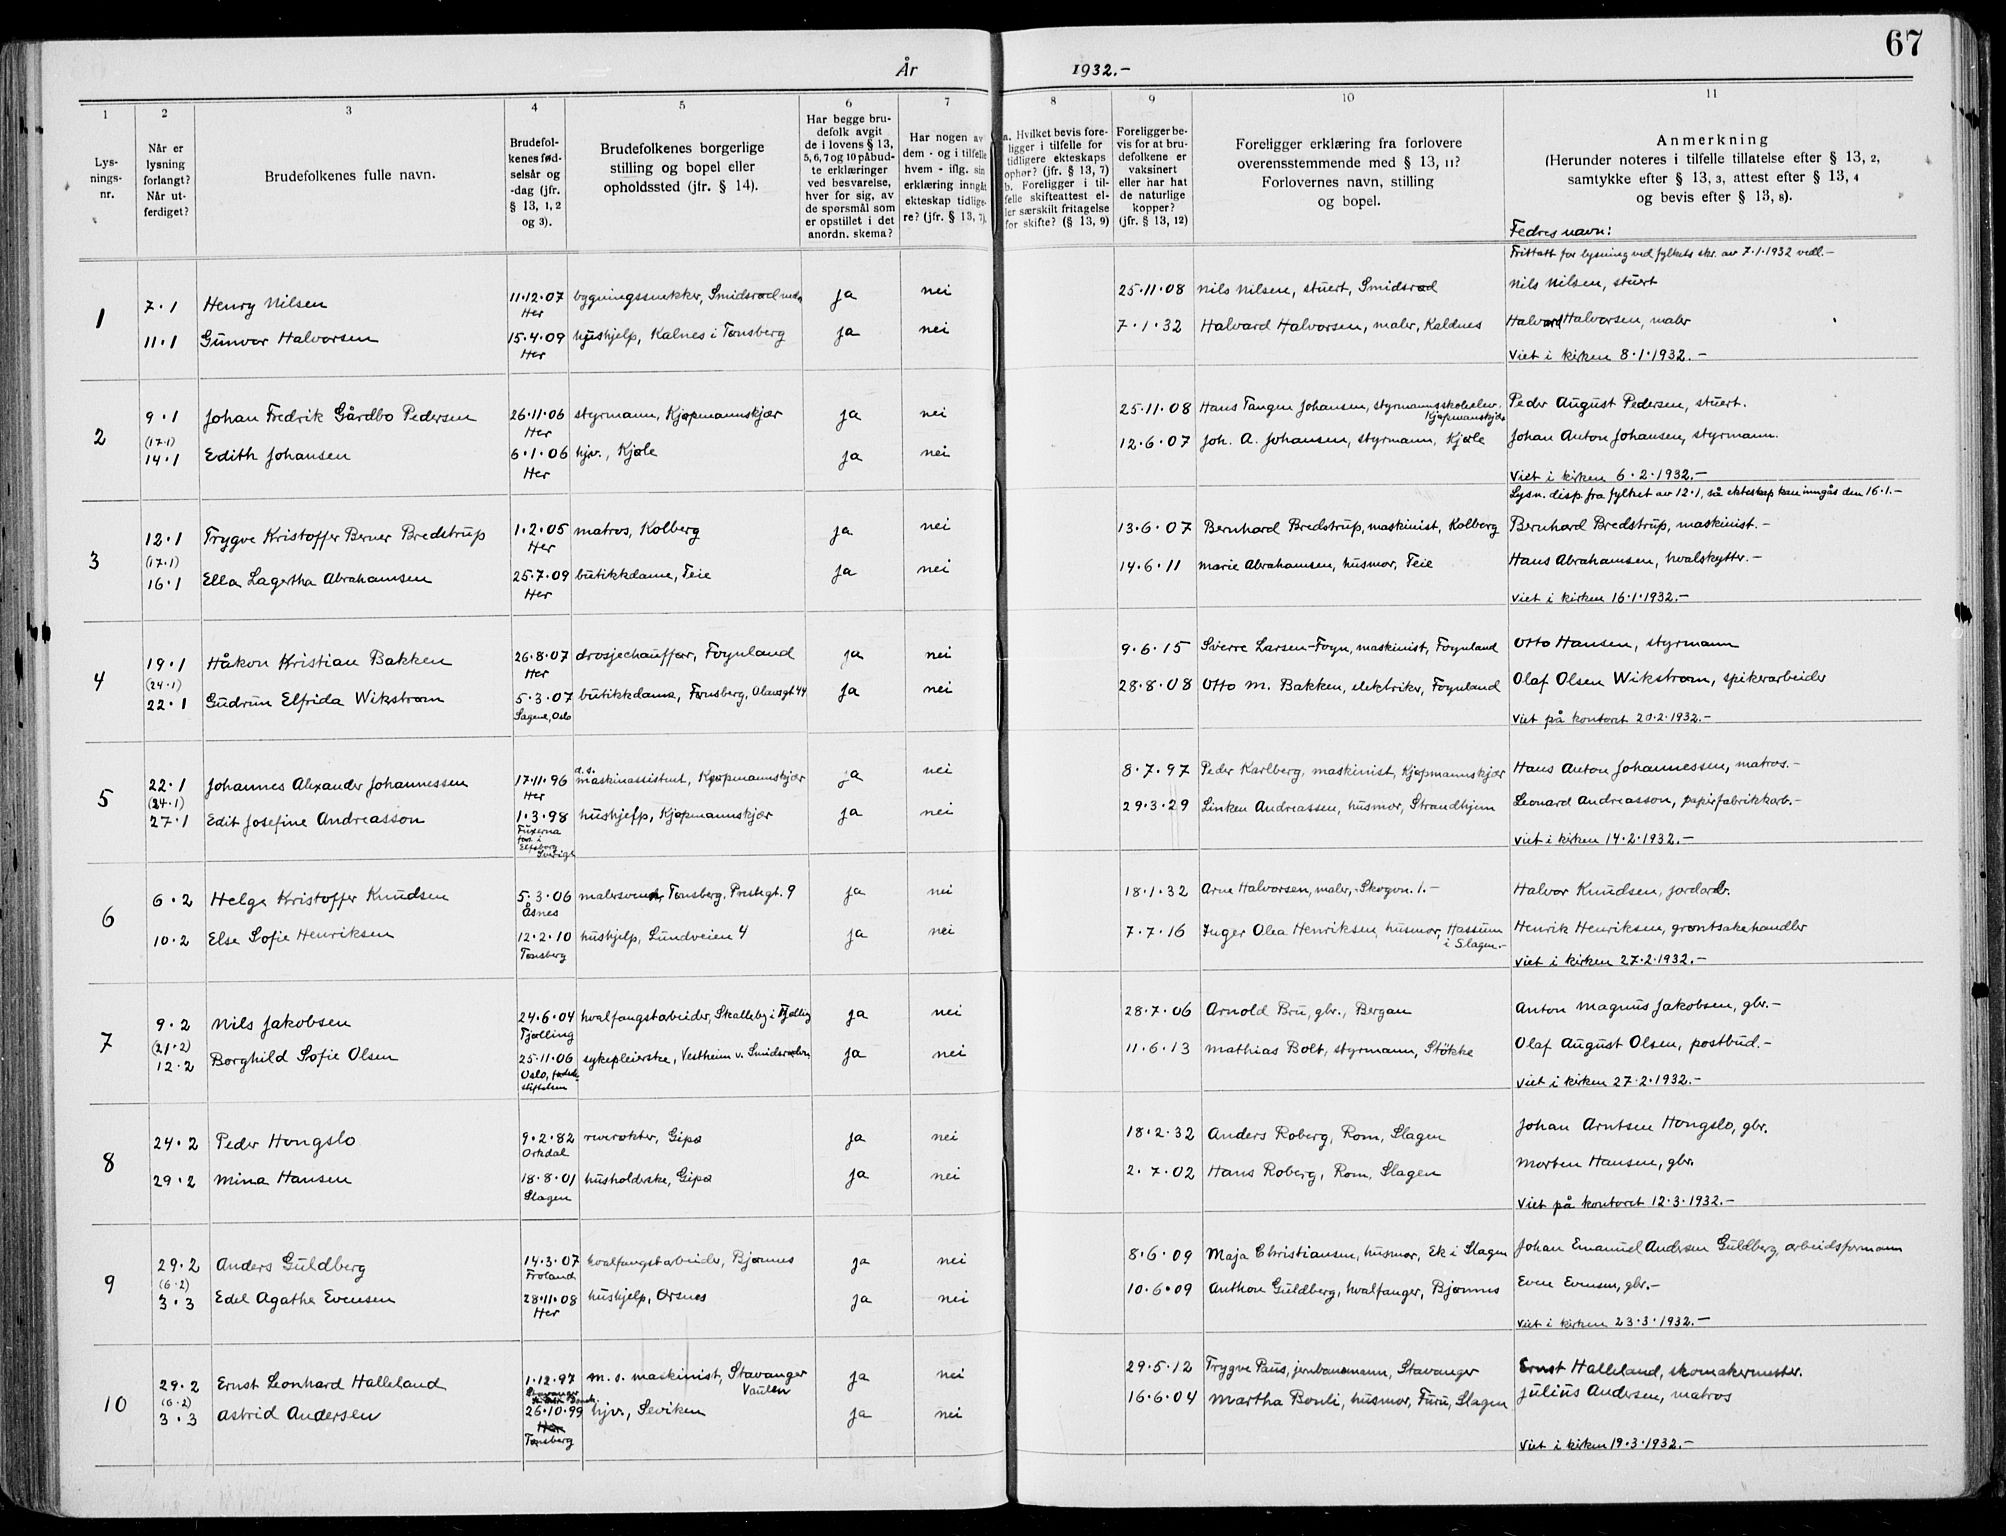 67
År 1932.-
1 2 3 4 5 6 7 8 9 10 11
Lys-
nings-
nr.
Når er
lysning
forlangt?
Når ut-
ferdiget?
Brudefolkenes fulle navn.
Brudefol-
kenes fød-
selsår og
-dag (jfr.
§ 13, 1, 2
og 3).
Brudefolkenes borgerlige
stilling og bopel eller
opholdssted (jfr. § 14).
Har begge bru-
defolk avgit
de i lovens § 13,
5, 6, 7 og 10 påbud-
te erklæringer
ved besvarelse,
hver for sig, av
de spørsmål som
er opstillet i det
anordn. skema?
Har nogen av
dem - og i tilfelle
hvem - iflg. sin
erklæring inngåt
ekteskap tidlige-
re? (jfr. § 13, 7).
a. Hvilket bevis fore-
ligger i tilfelle for
tidligere ekteskaps
ophør? (jfr. § 13, 7)
b. Foreligger i til-
felle skifteattest el-
ler særskilt fritagelse
for skifte? (§ 13, 9)
Foreligger be-
vis for at bru-
defolkene er
vaksinert
eller har hat
de naturlige
kopper?
(jfr. § 13, 12)
Foreligger erklæring fra forlovere
overensstemmende med § 13, 11?
Forlovernes navn, stilling
og bopel.
Anmerkning
(Herunder noteres i tilfelle tillatelse efter § 13, 2,
samtykke efter § 13, 3, attest efter § 13, 4
og bevis efter § 13, 8).
Fedres navn:
Frittatt for lysning ved fylkets skr. av 7.1.1932 vedl.-
1 7.1 Henry Nilsen 11.12.07 bygningssnekker, Smidsrød ja nei 25.11.08 Nils Nilsen, stuert, Smidsrød Nils Nilsen, stuert
Her
11.1 Gunvor Halvorsen 15.4.09 hushjelp, Kalnes i Tønsberg ja nei 7.1.32 Halvard Halvorsen, maler, Kaldnes Halvard Halvorsen, maler
Her
Viet i kirken 8.1.1932.-
2 9.1 Johan Fredrik Gårdbo Pedersen 26.11.06 styrmann, Kjøpmannskjær ja nei 25.11.08 Hans Tangen Johansen, styrmannsskoleelev, Peder August Pedersen, stuert.
Kjøpmanskjær
(17.1) Her
14.1 Edith Johansen 6.1.06 hjv., Kjøle ja nei 12.6.07 Joh. A. Johansen, styrmann, Kjøle Johan Anton Johansen, styrmann.
Her
Viet i kirken 6.2.1932.-
Lysn. disp. fra fylket av 12.1, så ekteskap kan inngås den 16.1.-
3 12.1 Trygve Kristoffer Berner Bredstrup 1.2.05 matros, Kolberg ja nei 13.6.07 Bernhard Bredstrup, maskinist, Kolberg Bernhard Bredstrup, maskinist.-
(17.1) Her
16.1 Ella Lagertha Abrahamsen 25.7.09 butikkdame, Teie ja nei 14.6.11 Marie Abrahamsen, husmor, Teie Hans Abrahamsen, hvalskytter.-
Her
Viet i kirken 16.1.1932.-
4 19.1 Håkon Kristian Bakken 26.8.07 drosjechauffør, Føynland ja nei 9.6.15 Sverre Larsen-Føyn, maskinist, Føynland Otto Hansen, styrmann
(24.1) Her
22.1 Gudrun Elfrida Wikstrøm 5.3.07 butikkdame, Tønsberg, Olavsgt 44 ja nei 28.8.08 Otto M. Bakken, elektriker, Føynland Olaf Olsen Wikstrøm, spikerarbeider
Sagene, Oslo
Viet på kontoret 20.2.1932.-
5 22.1 Johannes Alexander Johannessen 17.11.96 d.s. maskinassistent, Kjøpmannskjær ja nei 8.7.97 Peder Karlberg, maskinist, Kjøpmannskjær Hans Anton Johannessen, matros.-
(24.1) Her
27.1 Edit Josefine Andreasson 1.3.98 hushjelp, Kjøpmannskjær ja nei 29.3.29 Linken Andreassen, husmor, Strandhjem Leonard Andreasson, papirfabrikkarb.-
Fuxerna
før. i
Elfsborg
Sverige
Viet i kirken 14.2.1932.-
6 6.2 Helge Kristoffer Knudsen 5.3.06 malersvenn, Tønsberg, Prestegt. 9 ja nei 18.1.32 Arne Halvorsen, maler, Skogvn. 1.- Halvor Knudsen, jordarb.
Åsnes
10.2 Else Sofie Henriksen 12.2.10 hushjelp, Lundveien 4 ja nei 7.7.16 Inger Olea Henriksen, husmor, Hassum Henrik Henriksen, grøntsakehandler
Tønsberg i Slagen.-
Viet i kirken 27.2.1932.-
7 9.2 Nils Jakobsen 24.6.04 hvalfangstarbeider, Skalleby i Tjølling ja nei 28.7.06 Arnold Bru, gbr., Bergan Anton Magnus Jakobsen, gbr.-
(21.2) Tjølling
12.2 Borghild Sofie Olsen 25.11.06 sykepleierske, Vestheim v. Smidsrødvn ja nei 11.6.13 Mathias Bolt, styrmann, Støkke Olaf August Olsen, postbud.-
Oslo, fødsels-
stiftelsen
Viet i kirken 27.2.1932.-
8 24.2 Peder Hongslo 9.2.82 reverøkter, Gipø ja nei 18.2.32 Anders Roberg, Rom, Slagen Johan Arntsen Hongslo, gbr.
Orkdal
29.2 Mina Hansen 18.8.01 husholderske, Gipø ja nei 2.7.02 Hans Roberg, Rom, Slagen Morten Hansen, gbr.
Slagen
Viet på kontoret 12.3.1932.-
9 29.2 Anders Guldberg 14.3.07 hvalfangstarbeider, Bjønnes ja nei 8.6.09 Maja Christiansen, husmor, Ek i Slagen Johan Emanuel Andersen Guldberg, arbeidsformann
(6.2) Froland
3.3 Edel Agathe Evensen 28.11.08 hushjelp, Orsnes ja nei 10.6.09 Anthon Guldberg, hvalfanger, Bjønnes Even Evensen, gbr.-
Her
Viet i kirken 23.3.1932.-
10 29.2 Ernst Leonhard Halleland 1.12.97 m.s. maskinist, Stavanger ja nei 29.5.12 Trygve Paus, jernbanemann, Stavanger Ernst Halleland, skomakermester.
Stavanger Vaulen
(6.2)
3.3 Astrid Andersen 26.10.99 hjv., Seviken ja nei 16.6.04 Martha Bonli, husmor, Furu, Slagen Julius Andersen, matros
Her
Tønsberg
Viet i kirken 19.3.1932.-